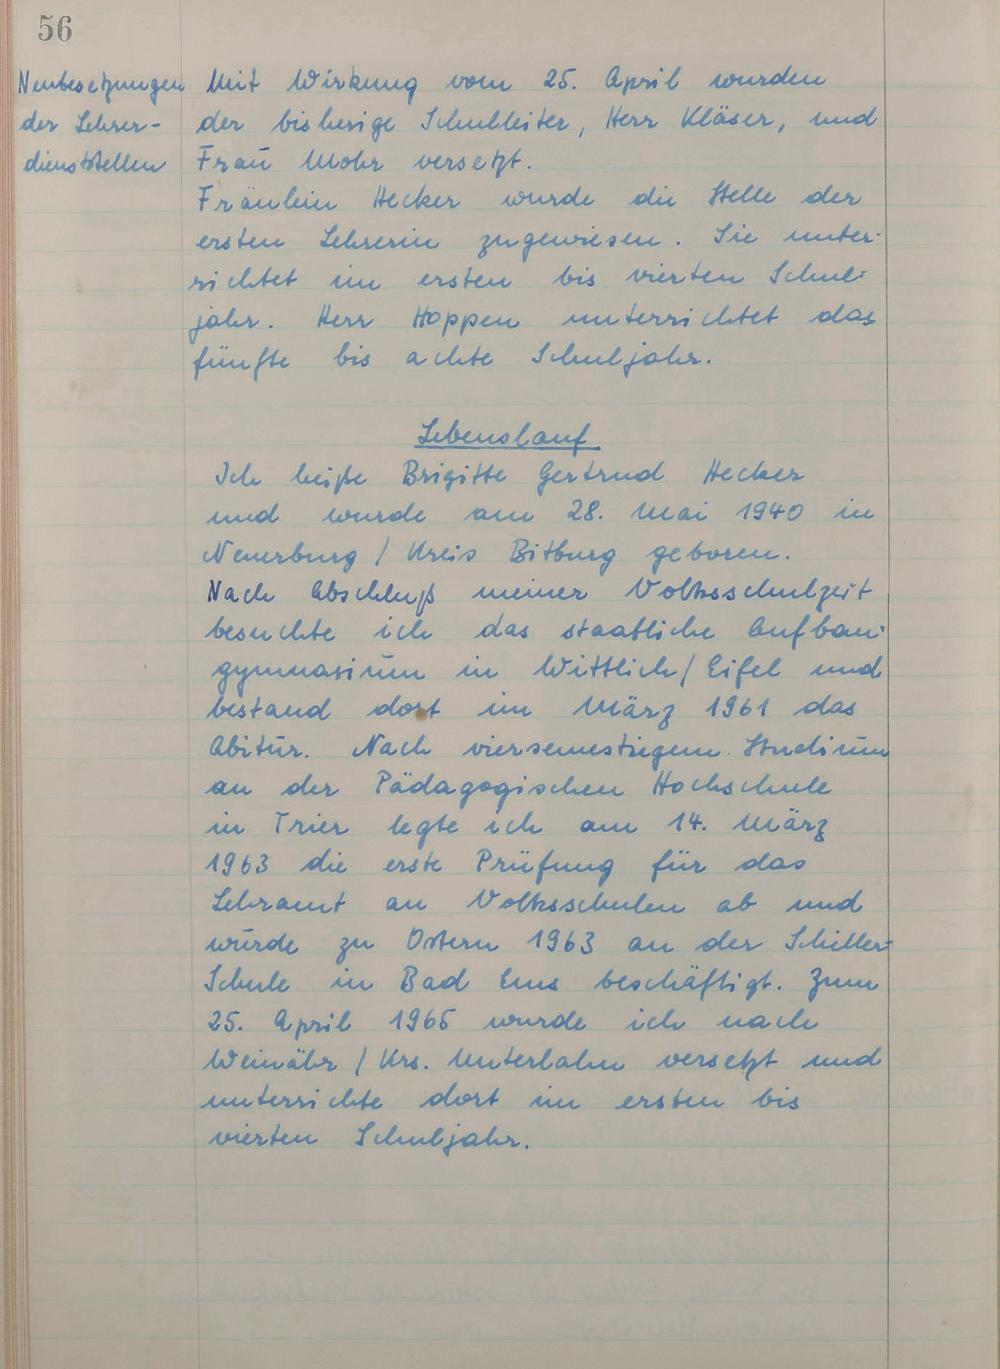 56
Neubesetzungen
der Lehrer-
dienststellen
Mit Wirkung vom 25. April wurden
der bisherige Schulleiter, Herr Kläser, und
Frau Mohr versetzt.
Fräulein Hecker wurde die Stelle der
ersten Lehrerin zugewiesen. Sie unter-
richtet im ersten bis vierten Schul-
jahr. Herr Hoppen unterrichtet das
fünfte bis achte Schuljahr.
Lebenslauf
Ich heiße Brigitte Gertrud Hecker
und wurde am 28. Mai 1940 in
Neuerburg / Kreis Bitburg geboren.
Nach Abschluß meiner Volksschulzeit
besuchte ich das staatliche Aufbau-
gymnasium in Wittlich / Eifel und
bestand dort im März 1961 das
Abitur. Nach viersemestrigem Studium
an der Pädagogischen Hochschule
in Trier legte ich am 14. März
1963 die erste Prüfung für das
Lehramt an Volksschulen ab und
wurde zu Ostern 1963 an der Schiller-
Schule in Bad Ems beschäftigt. Zum
25. April 1965 wurde ich nach
Weinähr / Krs. Unterlahn versetzt und
unterrichte dort im ersten bis
vierten Schuljahr.